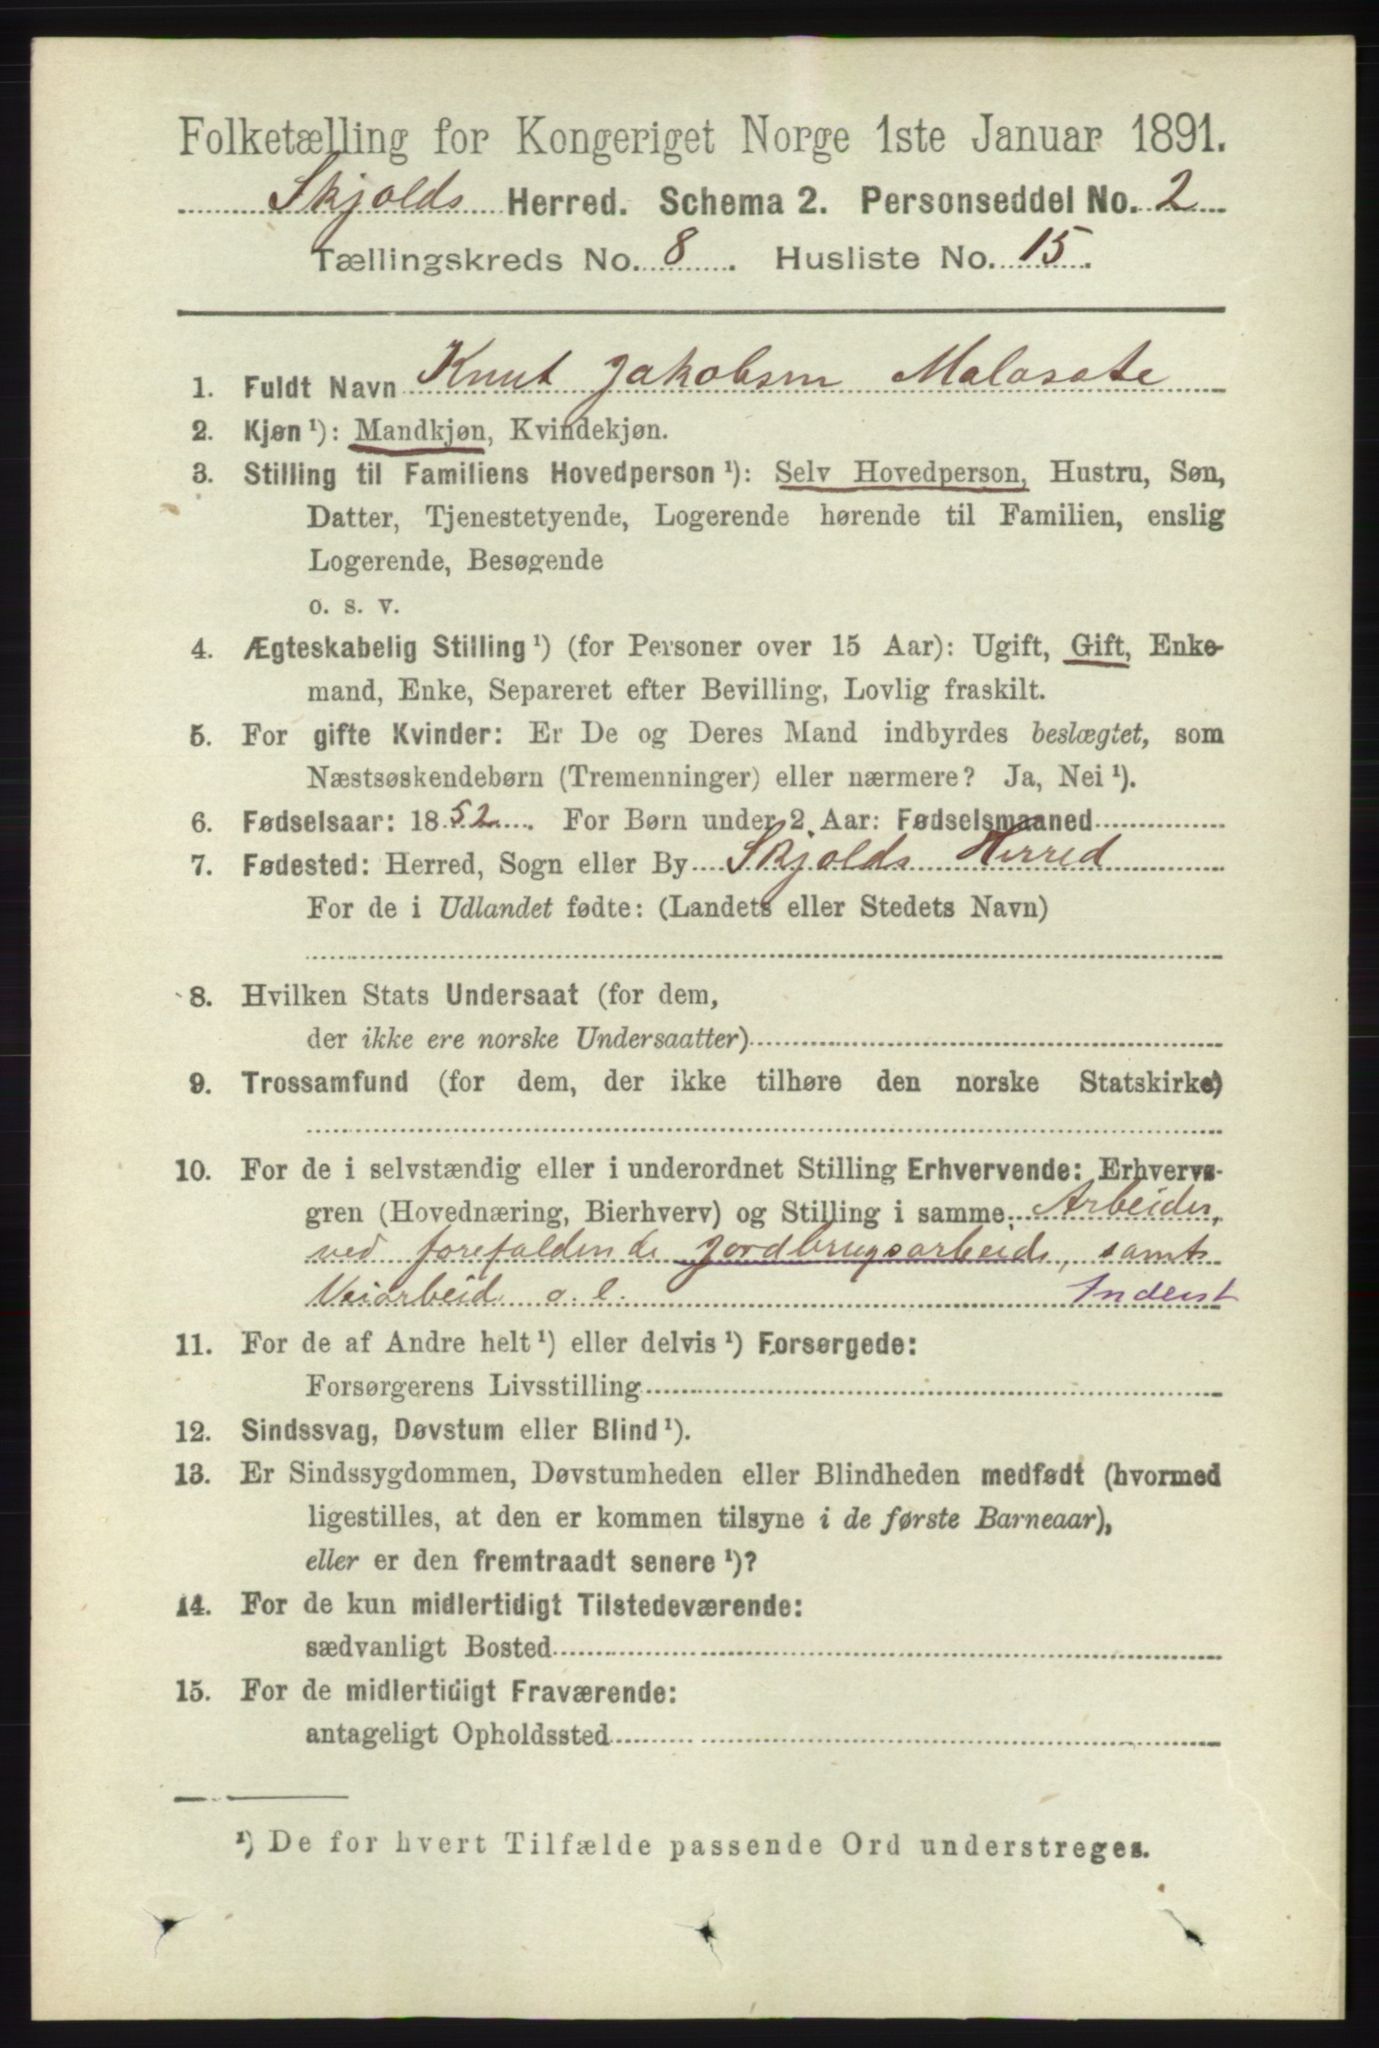 Folketælling for Kongeriget Norge 1ste Januar 1891.
Skjolds Herred. Schema 2. Personseddel No. 2
Tællingskreds No. 8. Husliste No. 15.
1. Fuldt Navn Knut Jakobsen Malasate
2. Kjøn ¹): Mandkjøn, Kvindekjøn.
3. Stilling til Familiens Hovedperson ¹): Selv Hovedperson, Hustru, Søn,
Datter, Tjenestetyende, Logerende hørende til Familien, enslig
Logerende, Besøgende
o. s. v.
4. Ægteskabelig Stilling ¹) (for Personer over 15 Aar): Ugift, Gift, Enke-
mand, Enke, Separeret efter Bevilling, Lovlig fraskilt.
5. For gifte Kvinder: Er De og Deres Mand indbyrdes beslægtet, som
Næstsøskendebørn (Tremenninger) eller nærmere? Ja, Nei ¹).
6. Fødselsaar: 1852. For Børn under 2 Aar: Fødselsmaaned
7. Fødested: Herred, Sogn eller By Skjolds Herred
For de i Udlandet fødte: (Landets eller Stedets Navn)
8. Hvilken Stats Undersaat (for dem,
der ikke ere norske Undersaatter)
9. Trossamfund (for dem, der ikke tilhøre den norske Statskirke)
10. For de i selvstændig eller i underordnet Stilling Erhvervende: Erhvervs-
gren (Hovednæring, Bierhverv) og Stilling i samme. Arbeider,
ved forefaldende Jordbrugsarbeide, samt
Veiarbeid o. l. Inderst
11. For de af Andre helt ¹) eller delvis ¹) Forsørgede:
Forsørgerens Livsstilling
12. Sindssvag, Døvstum eller Blind ¹).
13. Er Sindssygdommen, Døvstumheden eller Blindheden medfødt (hvormed
ligestilles, at den er kommen tilsyne i de første Barneaar),
eller er den fremtraadt senere ¹)?
14. For de kun midlertidigt Tilstedeværende:
sædvanligt Bosted
15. For de midlertidigt Fraværende:
antageligt Opholdssted
¹) De for hvert Tilfælde passende Ord understreges.